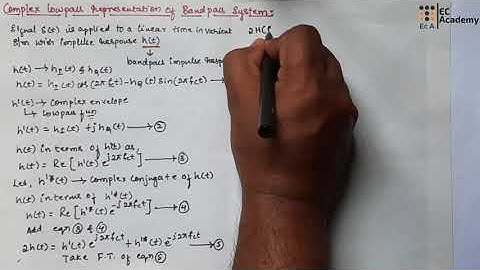 Complex Lowpass Representation of Bandpass Systems
Signal s(t) is applied to a linear time invarient
S/m with impulse Response h(t)
bandpass impulse Respon
h(t) → hI(t) & hQ(t)
h(t) = hI(t) cos(2πfct) - hQ(t) sin(2πfct) →
h'(t) → Complex envelope
↳ Lowpass fun
h'(t) = hI(t) + j hQ(t) → ②
h(t) in terms of h'(t) as,
h(t) = Re[h'(t) e^j2πfct] → ③
Let, h'*(t) → Complex conjugate of h(t)
h(t) in terms of h'*(t)
h(t) = Re[h'*(t) e^-j2πfct] → ④
Add eqn ③ & ④
2h(t) = h'(t) e^j2πfct + h'*(t) e^-j2πfct → ⑤
Take F.T. of eqn ⑤
2H(
EC
Academy
EcA